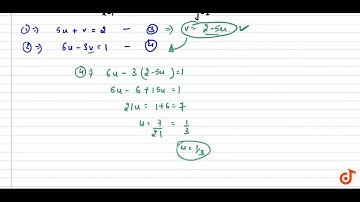 ① ⇒ 5u + v = 2 — ③ ⇒ v = 2-5u ✓
② ⇒ 6u - 3v = 1 — ④
④ ⇒ 6u - 3(2-5u) = 1
6u - 6 + 15u = 1
21u = 1+6 = 7
u = 7/21 = 1/3
u = 1/3